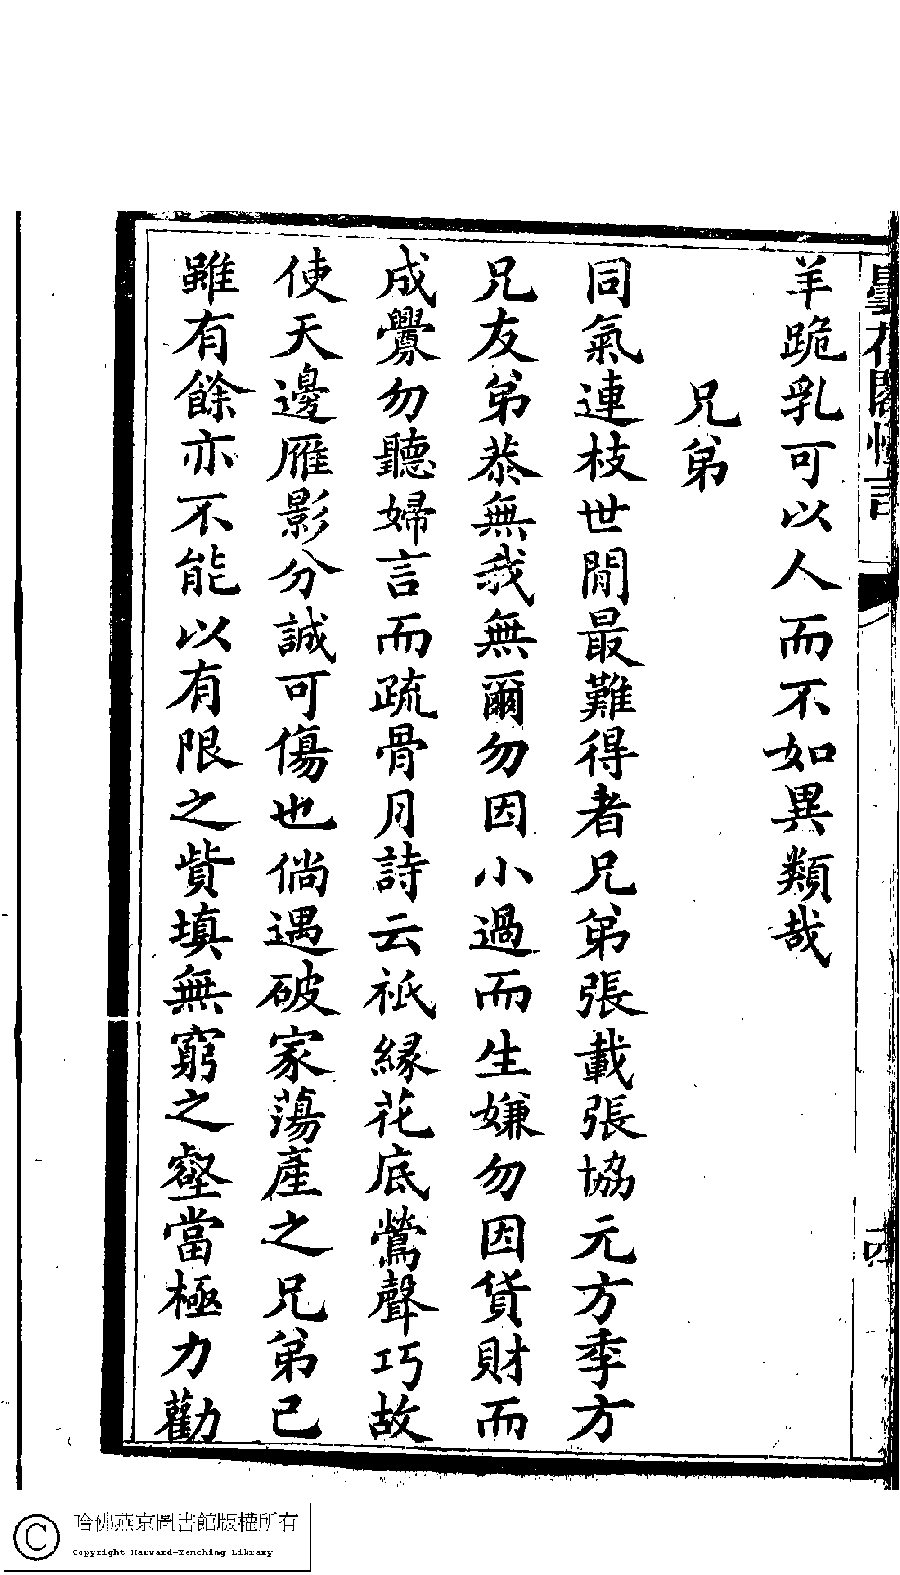 曇花閣惺言
羊跪乳可以人而不如異類哉
兄弟
同氣連枝世閒最難得者兄弟張載張協元方季方
兄友弟恭無我無爾勿因小過而生嫌勿因貨財而
成釁勿聽婦言而疏骨月詩云祇縁花底鶯聲巧故
使天邊雁影分誠可傷也倘遇破家蕩產之兄弟已
雖有餘亦不能以有限之貲填無窮之壑當極力勸
哈佛燕京圖書館版權所有
Copyright Harvard-Yenching Library